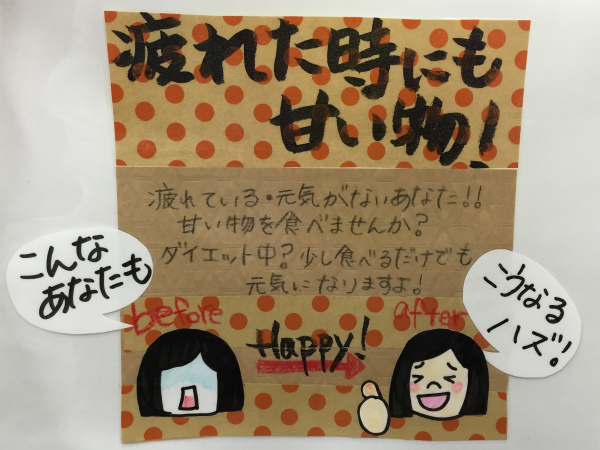 疲れた時にも
甘い物!
疲れている・元気がないあなた!!
甘い物を食べませんか?
ダイエット中?少し食べるだけでも
元気になりますよ!
こんな
あなたも
before
Happy!
after
こうなる
ハズ!